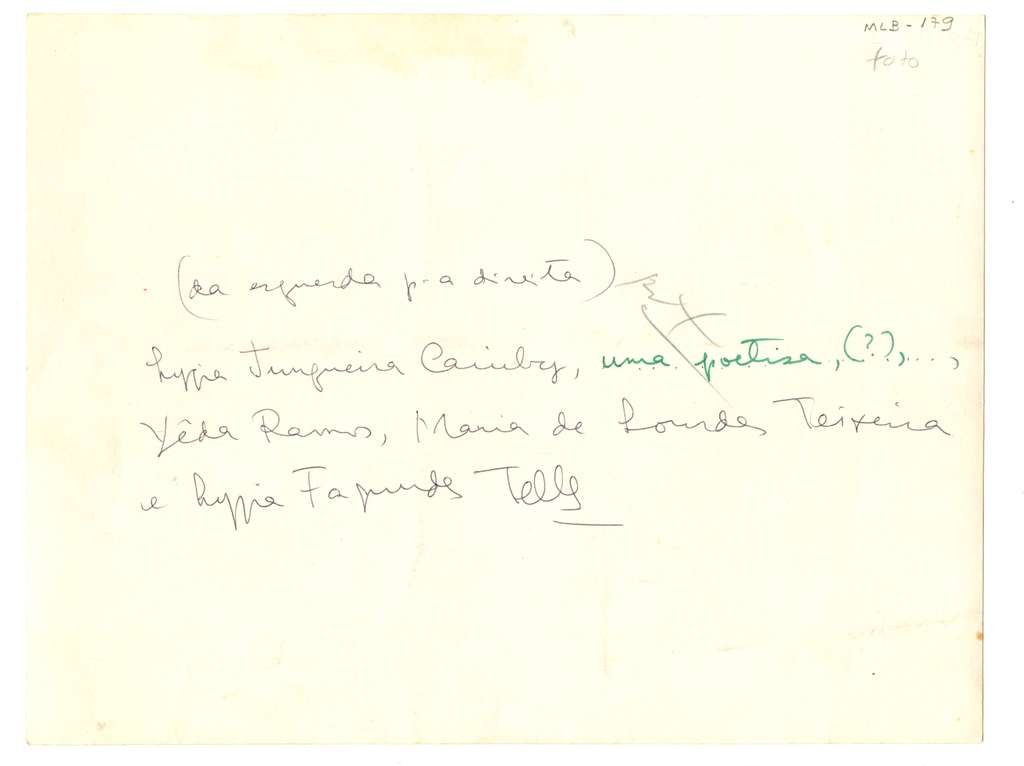 MLB - 179
foto
(da esquerda p. a direita)
Lygia Junqueira Caiuby, uma poetisa, (??), ...,
Yêda Ramos, Maria de Lourdes Teixeira
e Lygia Fagundes Telles